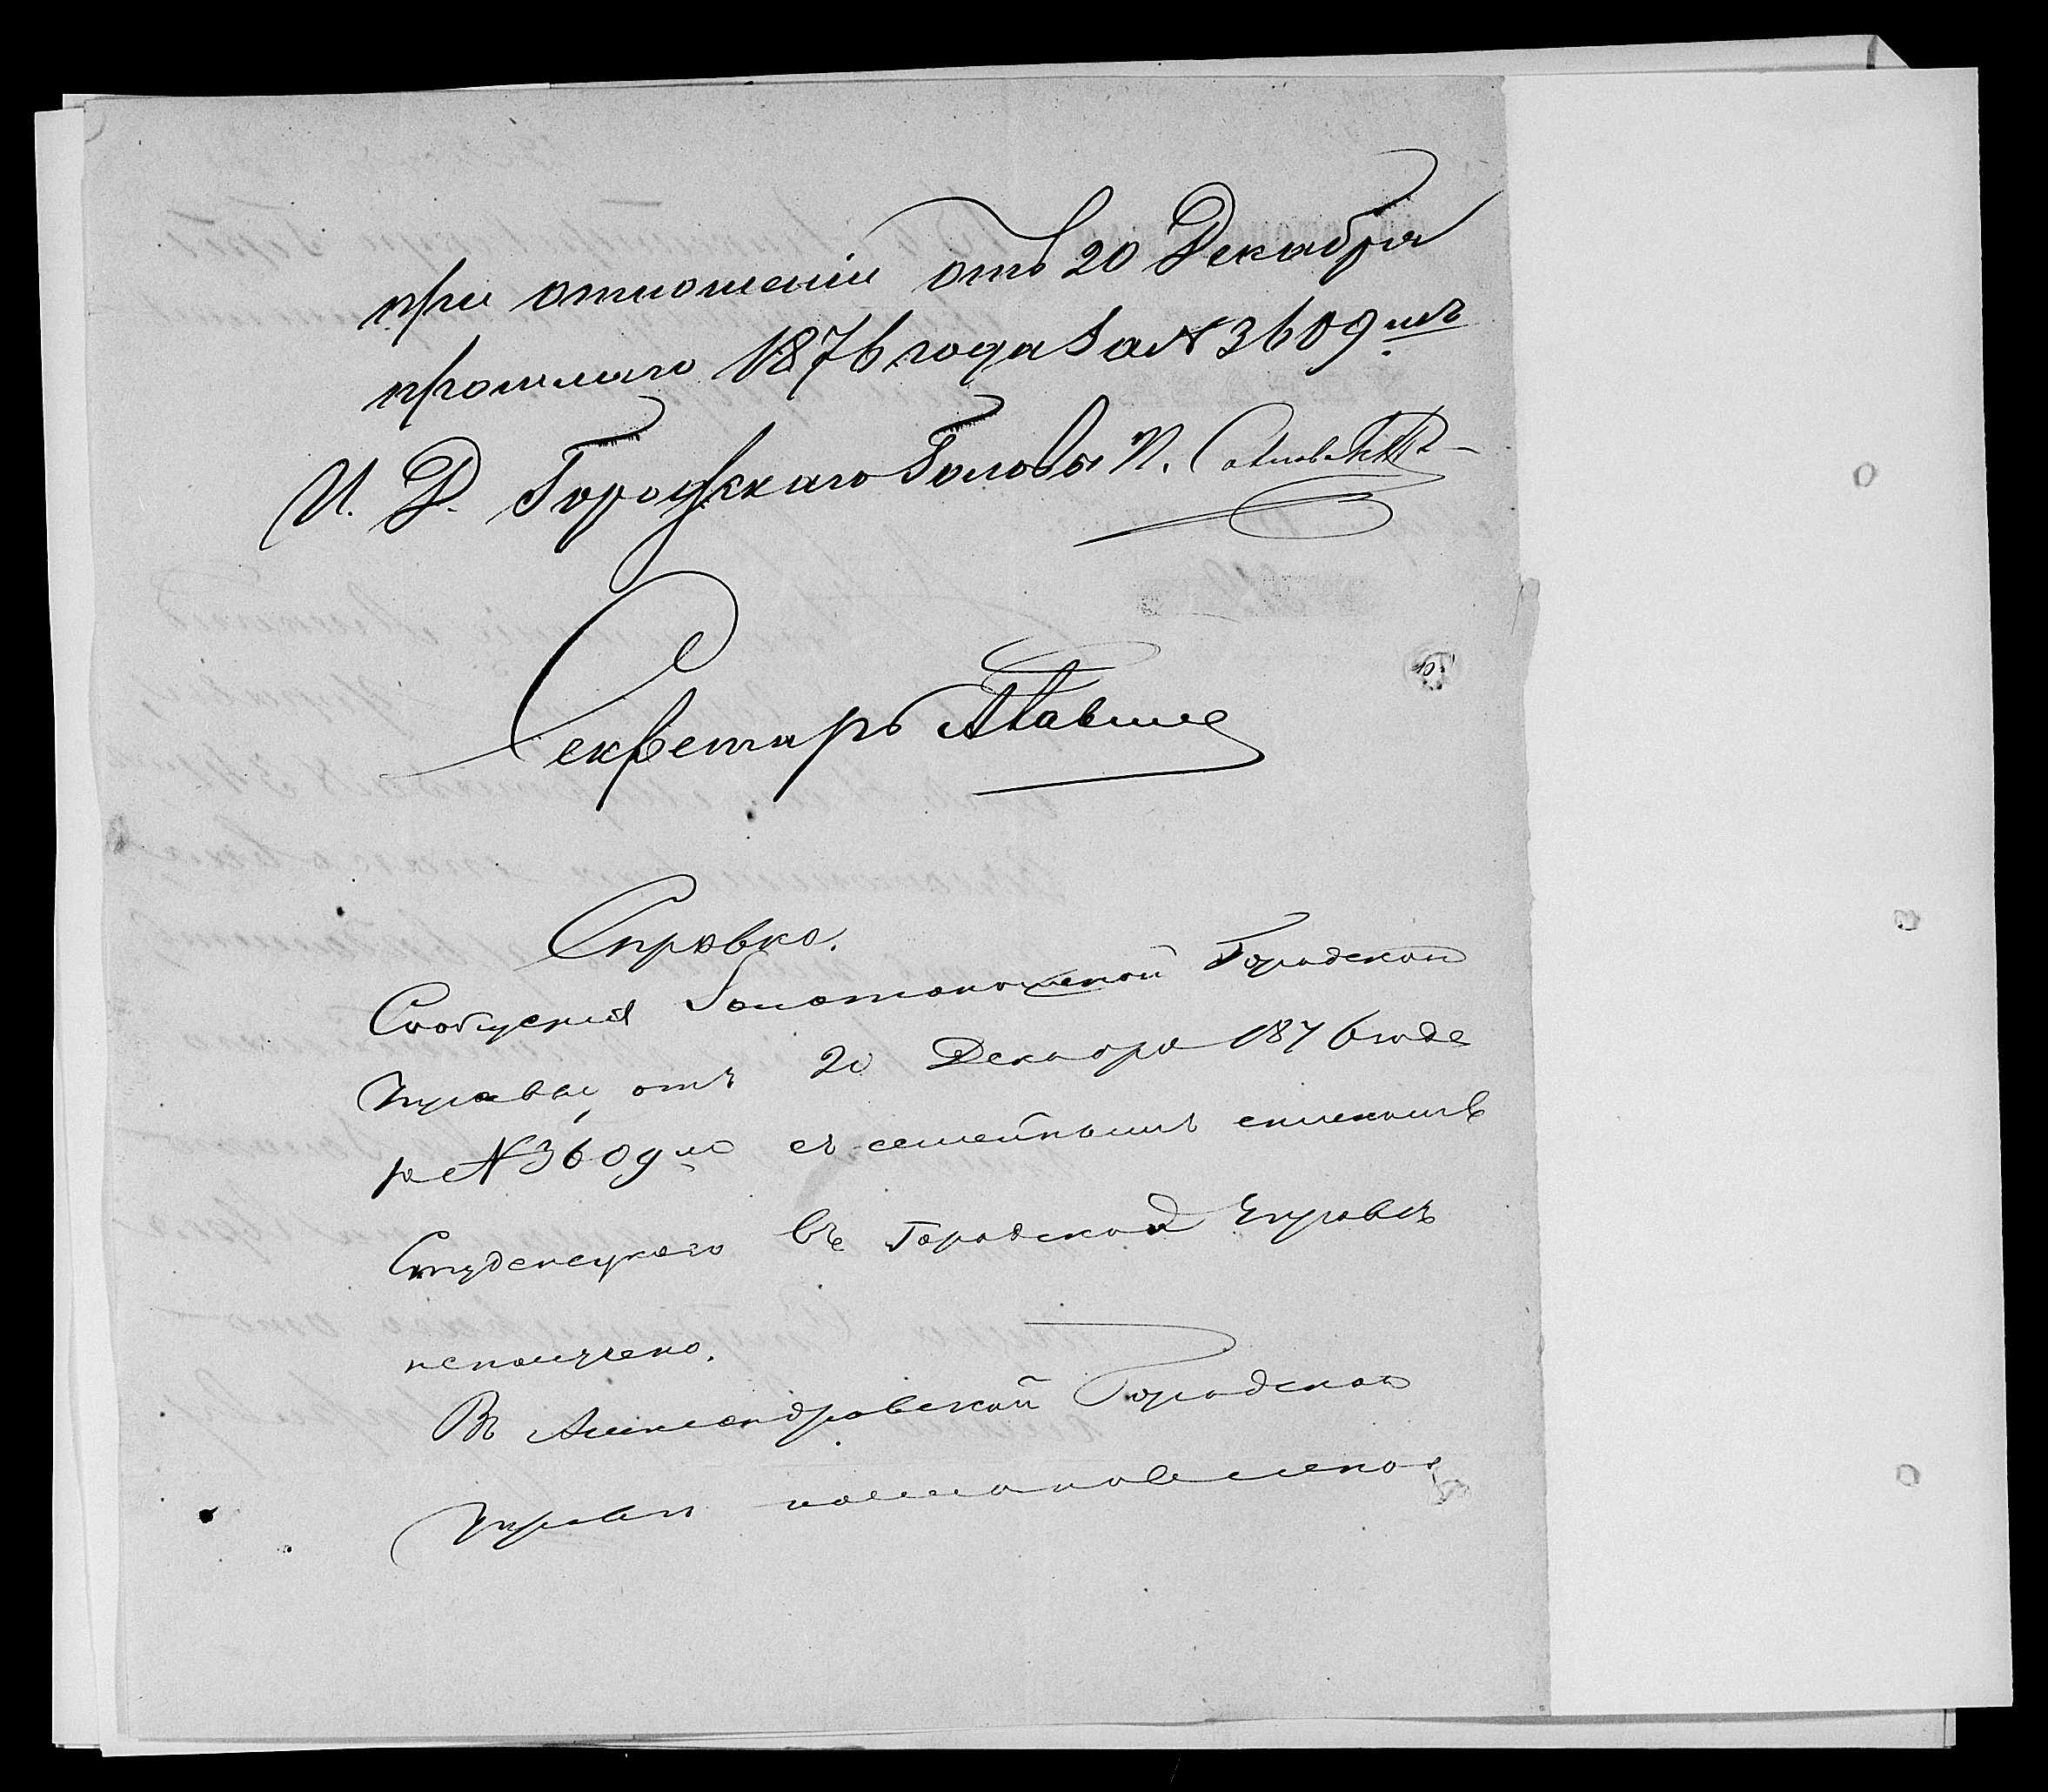 при отношеніи отъ 20 Декабря
прошлаго 1876 года за № 3609мъ
И. Д. Городскаго Головы И.
Секретарь
Справка.
Сообщенія Золотоношской Городской
Управы, отъ 20 Декабря 1876 года
за № 3609мъ съ семейнымъ спискомъ
Студенецкого въ Городской Управѣ
неполучено.
Въ Александровской Городской
Управѣ постановлено: